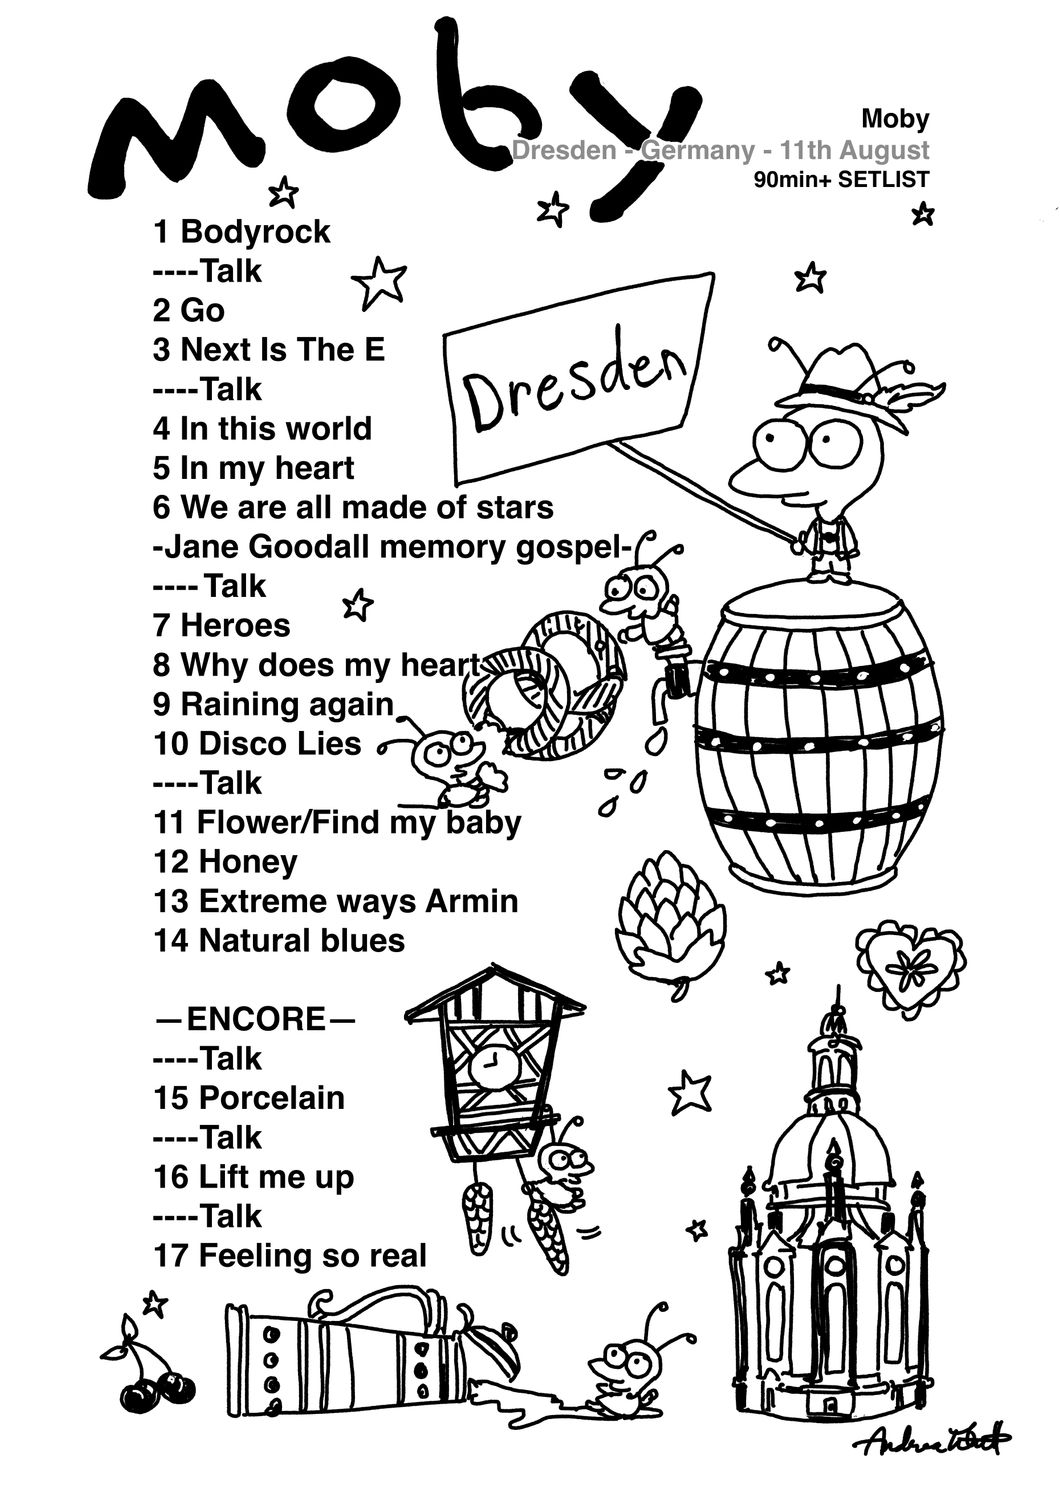 moby
Moby
Dresden - Germany - 11th August
90min+ SETLIST
1 Bodyrock
----Talk
2 Go
3 Next Is The E
----Talk
4 In this world
5 In my heart
6 We are all made of stars
-Jane Goodall memory gospel-
---- Talk
7 Heroes
8 Why does my heart
9 Raining again
10 Disco Lies
----Talk
11 Flower/Find my baby
12 Honey
13 Extreme ways Armin
14 Natural blues
—ENCORE—
----Talk
15 Porcelain
----Talk
16 Lift me up
----Talk
17 Feeling so real
Dresden
Andrea